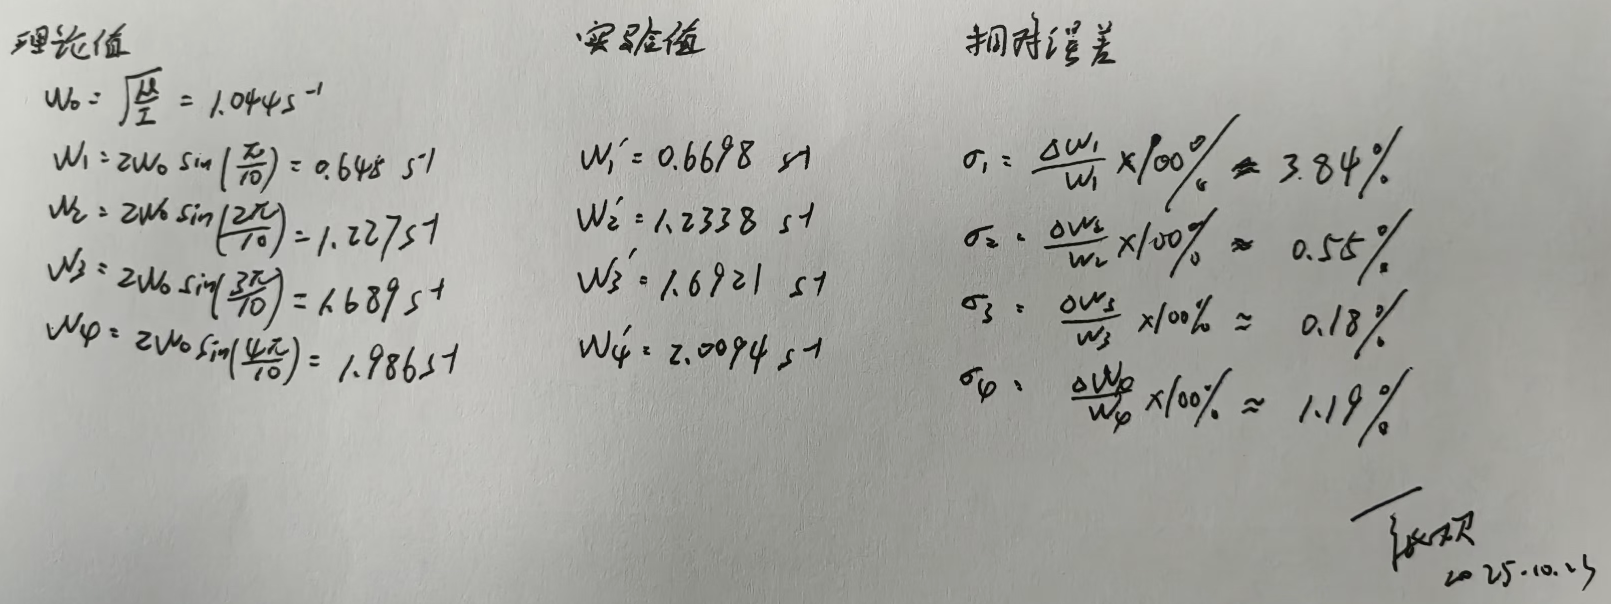 理论值
W₀ = √(μ/I) = 1.044 s⁻¹
W₁ = 2W₀ sin(π/10) = 0.648 s⁻¹
W₂ = 2W₀ sin(2π/10) = 1.227 s⁻¹
W₃ = 2W₀ sin(3π/10) = 1.689 s⁻¹
W₄ = 2W₀ sin(4π/10) = 1.986 s⁻¹
实验值
W₁′ = 0.6698 s⁻¹
W₂′ = 1.2338 s⁻¹
W₃′ = 1.6921 s⁻¹
W₄′ = 2.0094 s⁻¹
相对误差
σ₁ = ΔW₁/W₁ × 100% ≈ 3.84%
σ₂ = ΔW₂/W₂ × 100% ≈ 0.55%
σ₃ = ΔW₃/W₃ × 100% ≈ 0.18%
σ₄ = ΔW₄/W₄ × 100% ≈ 1.19%
2025.10.23